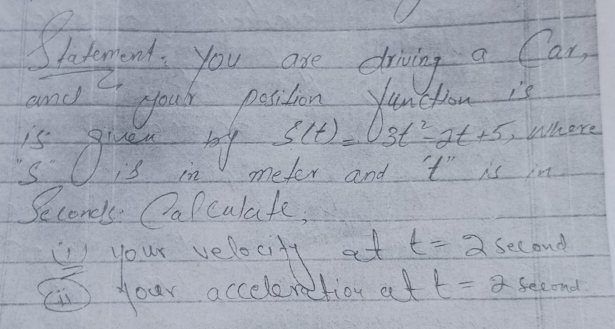 Statement: You are driving a Car,
and your position function is
is given by S(t) = 3t²-2t+5, where
"S" is in meter and "t" is in
Seconds. Calculate,
(i) your velocity at t = 2 second
(ii) Your acceleration at t = 2 second.